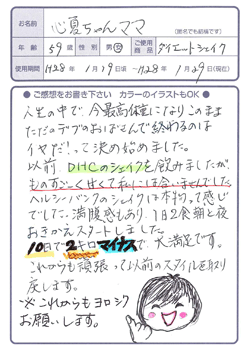 お名前 心夏ちゃんママ
(匿名でも結構です)
年齢 59歳 性別 女 ご使用商品 ダイエットシェイク
使用期間 H28年1月19日頃~H28年1月29日(現在)
●ご感想をお書き下さい カラーのイラストもOK●
人生の中で、今最高体重になりこのまま
ただのデブのおばさんで終わるのは
イヤだ!って決め始めました。
以前、DHCのシェイクを飲みましたが
ものすごーく甘くて私には合いませんでした
ヘルシーバンクのシェイクは本物って感じ
でした。満腹感もあり、1日2食朝と夜
おきかえスタートしました。
10日で2キロマイナスで、大満足です。
これからも頑張って以前のスタイルを取り
戻します。
※これからもヨロシク
お願いします。